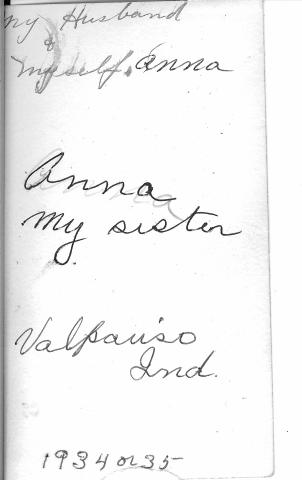 my Husband
&
myself. Anna
Anna
My sister
Valpariso
Ind.
1934 or 35